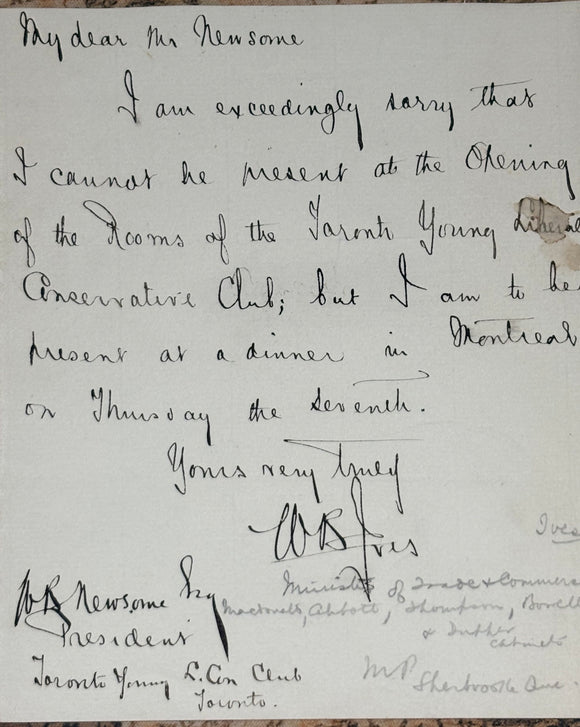 My dear Mr Newsome
I am exceedingly sorry that
I cannot be present at the Opening
of the Rooms of the Toronto Young Liberal
Conservative Club; but I am to be
present at a dinner in Montreal
on Thursday the seventh.
Yours very truly
WB Ives
Ives
Minister of Trade & Commerce
Macdonald, Abbott, Thompson, Bowell
& Tupper
Cabinets
MP
Sherbrooke Que.
WB Newsome Esq
President
Toronto Young L. Con Club
Toronto.